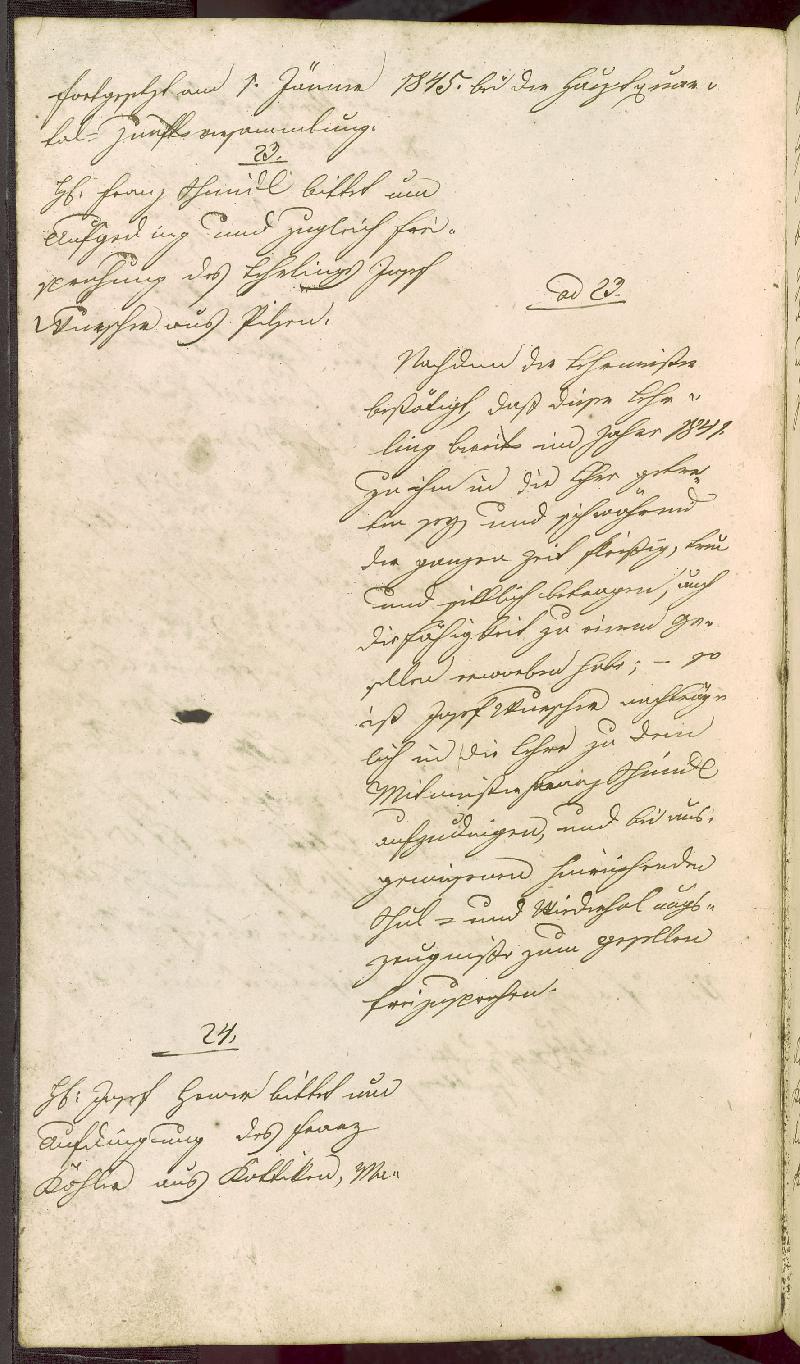 fortgesetzt am 1. Jänner 1845. bei der Hauptquar-
tal- Zunftversammlung.
23.
H: Franz Schmidl bittet um
Aufgeding und zugleich Frei-
sprechung des Lehrlings Josef
Wurscher aus Pilsen.
ad 23.
Nachdem der Lehrmeister
bestätigt, daß dieser Lehr-
ling bereits im Jahre 1841.
zu ihm in die Lehre getre-
ten sey, und sich während
der ganzen Zeit fleißig, treu
und sittlich betragen, auch
die Fähigkeit zu einem Ge-
sellen erworben habe; - so
ist Josef Wurscher nachträg-
lich in die Lehre zu dem
Mitmeister Franz Schmidl
aufzudingen, und bei aus-
gewiesenen hinreichenden
Schul- und Wiederholungs-
zeugniße zum Gesellen
freizusprechen.
24.
H: Josef bittet um
Aufdingung des Franz
Köhler aus Kottiken, Mi-